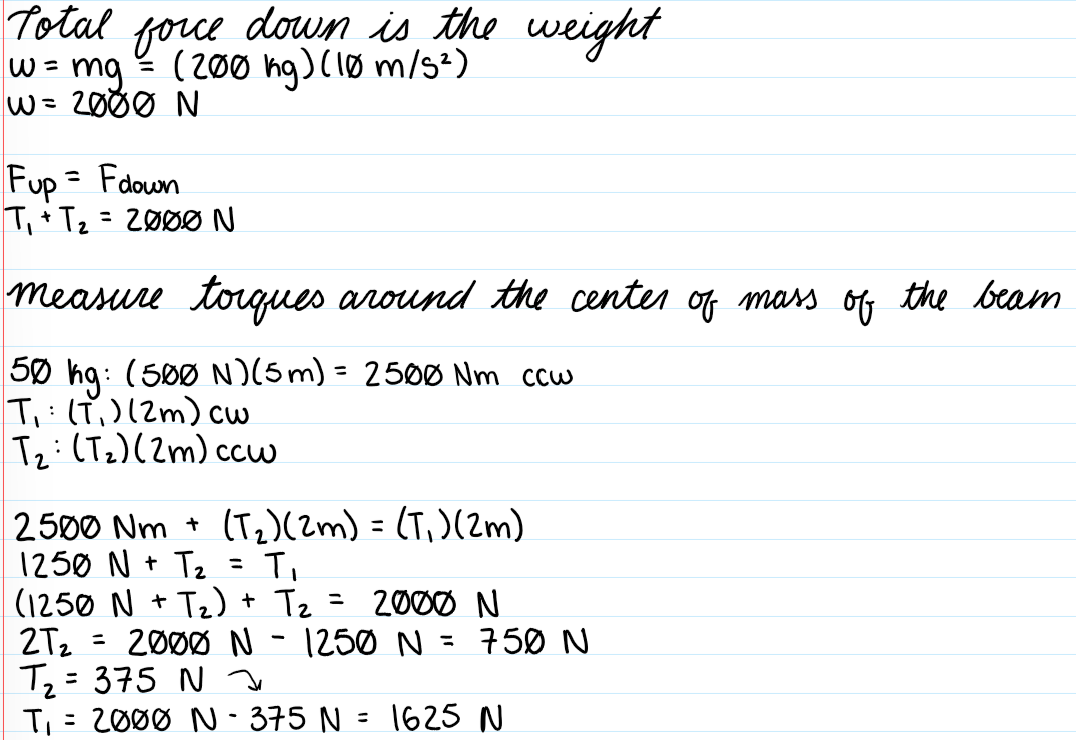 Total force down is the weight
w = mg = (200 kg)(10 m/s²)
w = 2000 N
Fup = Fdown
T₁ + T₂ = 2000 N
measure torques around the center of mass of the beam
50 kg: (500 N)(5m) = 2500 Nm ccw
T₁: (T₁)(2m) cw
T₂: (T₂)(2m) ccw
2500 Nm + (T₂)(2m) = (T₁)(2m)
1250 N + T₂ = T₁
(1250 N + T₂) + T₂ = 2000 N
2T₂ = 2000 N - 1250 N = 750 N
T₂ = 375 N ↘
T₁ = 2000 N - 375 N = 1625 N